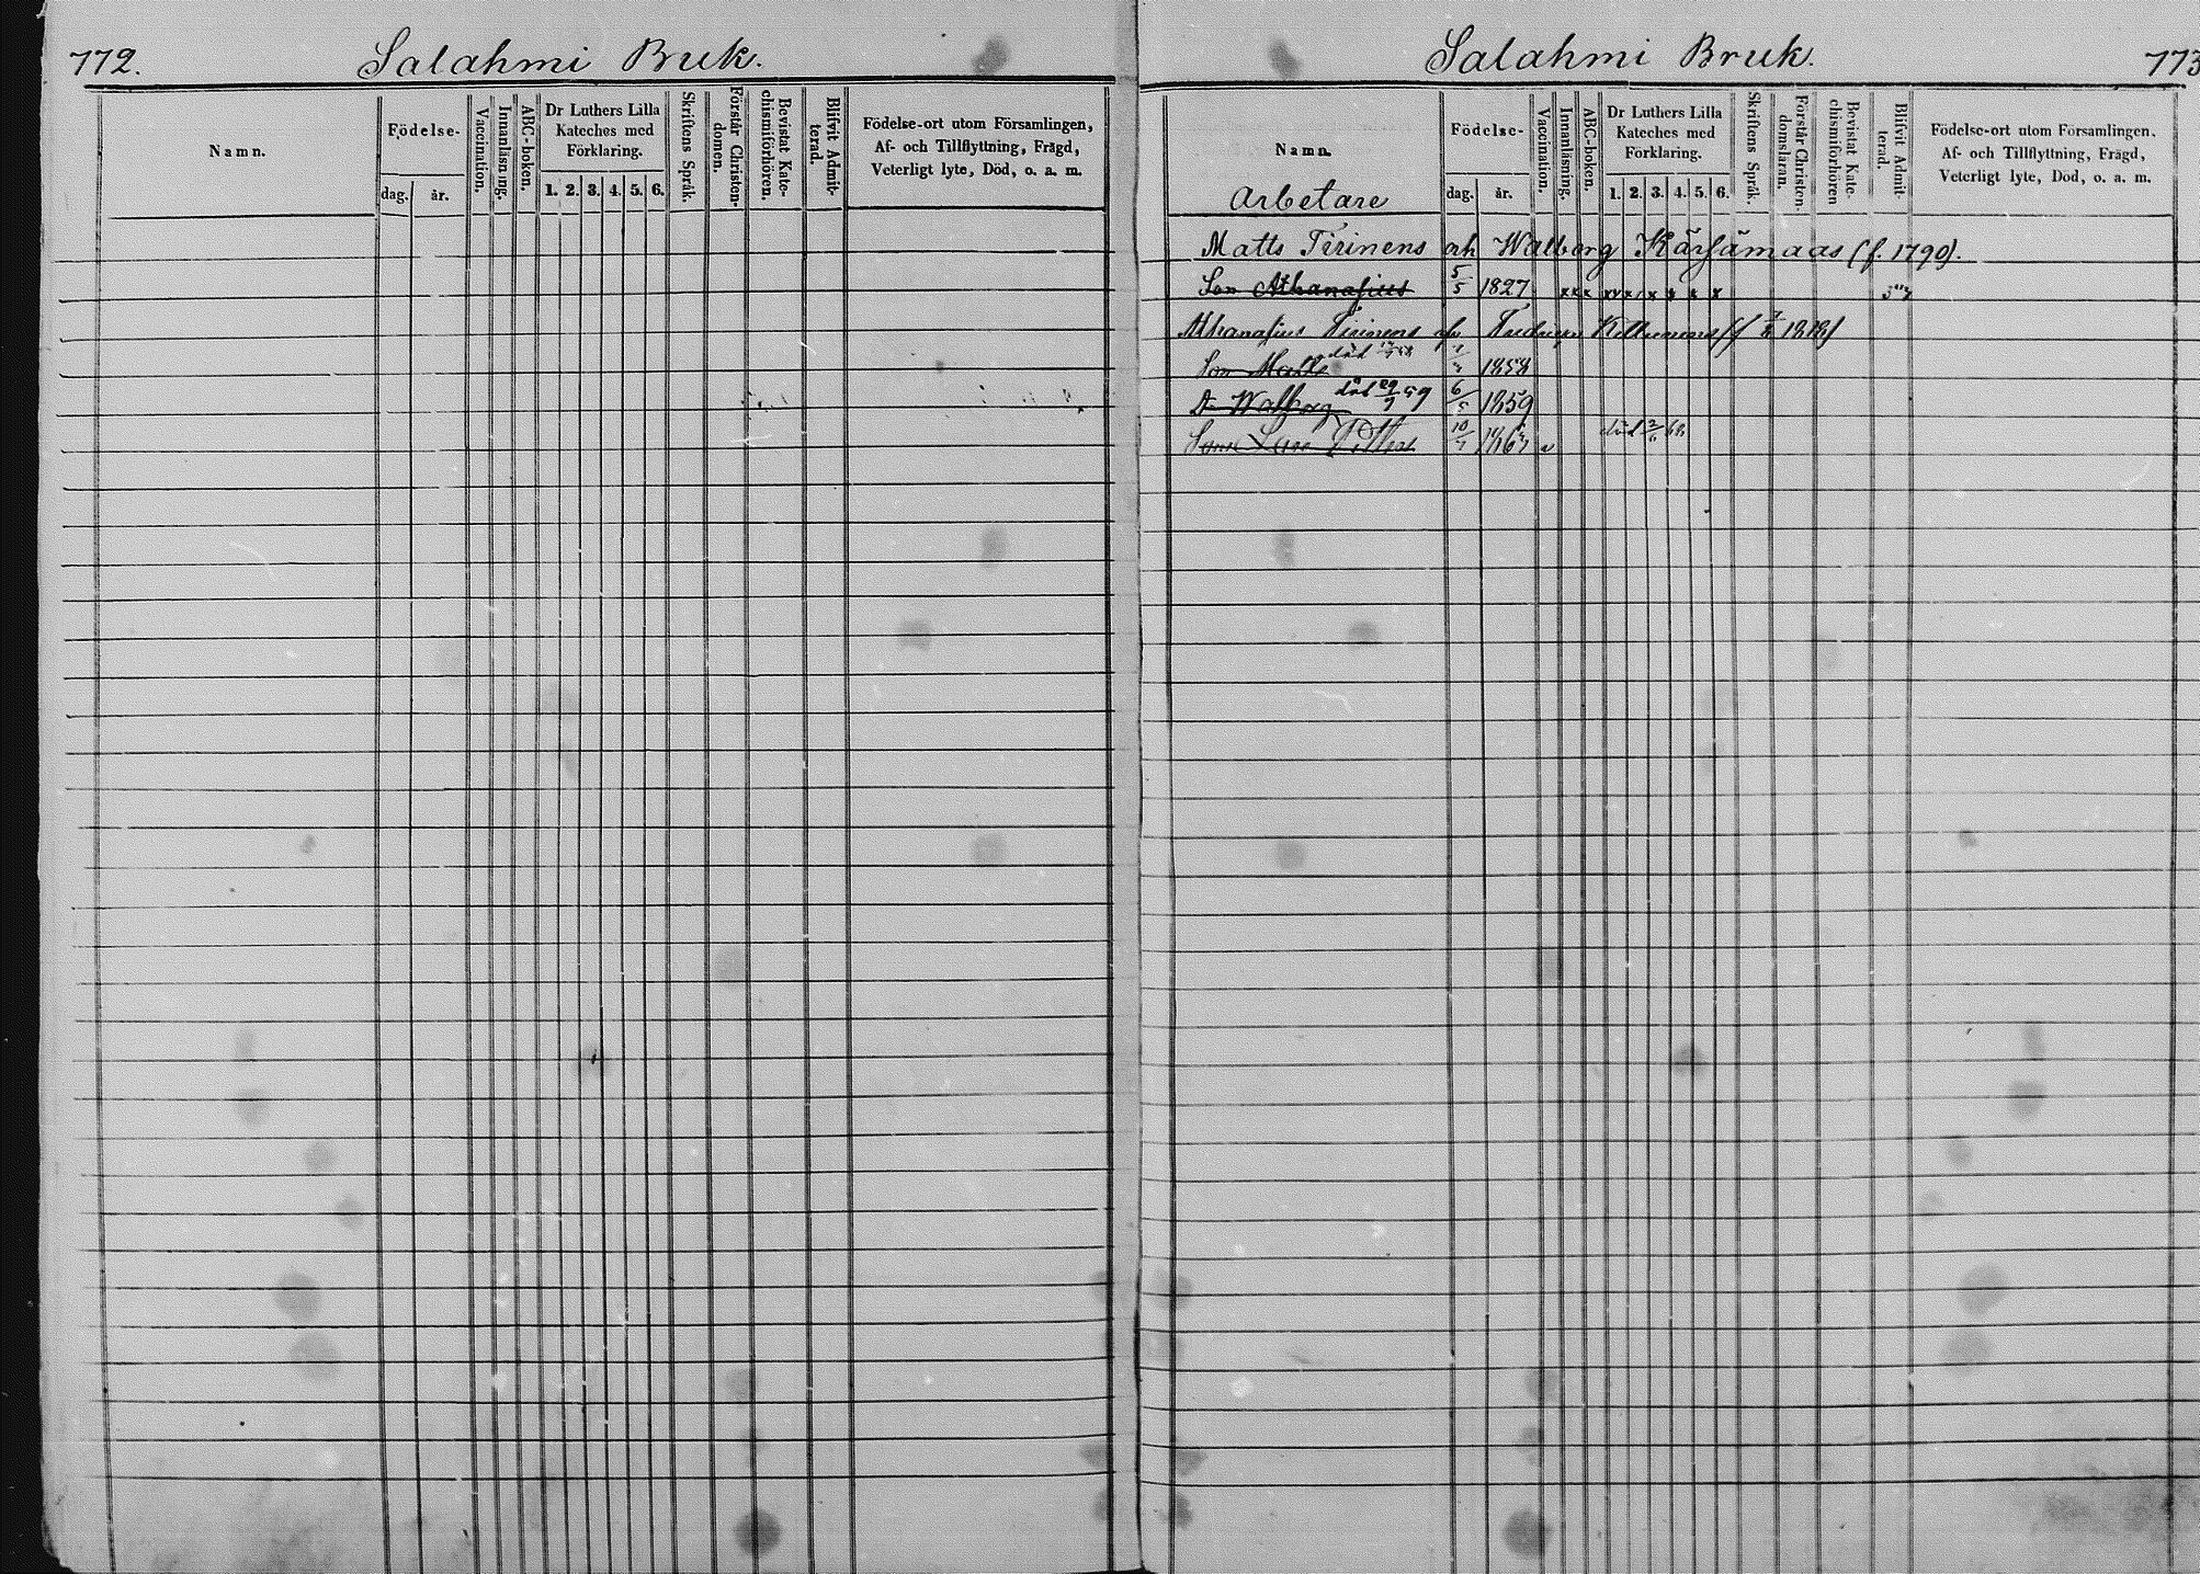 772.
Salahmi Bruk.
Namn.
Födelse-
dag.
år.
Vaccination.
Innanläsning.
ABC-boken.
Dr Luthers Lilla
Kateches med
Förklaring.
1. 2. 3. 4. 5. 6.
Skriftens Språk.
Förstår Christen-
domen.
Bevistat Kate-
chismiförhören.
Blifvit Admit-
terad.
Födelse-ort utom Församlingen,
Af- och Tillflyttning, Frägd,
Veterligt lyte, Död, o. a. m.
Salahmi Bruk.
773
Namn.
Arbetare
Födelse-
dag.
år.
Vaccination.
Innanläsning.
ABC-boken.
Dr Luthers Lilla
Kateches med
Förklaring.
1. 2. 3. 4. 5. 6.
Skriftens Språk.
Förstår Christen-
domsläran.
Bevistat Kate
chismiförhören
Blifvit Admit-
terad.
Födelse-ort utom Församlingen.
Af- och Tillflyttning, Frägd,
Veterligt lyte, Död, o. a. m.
Matts Tirinens och Walborg Kärsämaas (f. 1790).
Son Athanasius 5/5 1827 x x x x x x x x x
Athanasius Tirinens 1818)
Son Matts död 1858
Dr Walborg död 29/9 59 6/5 1859
10/7 död